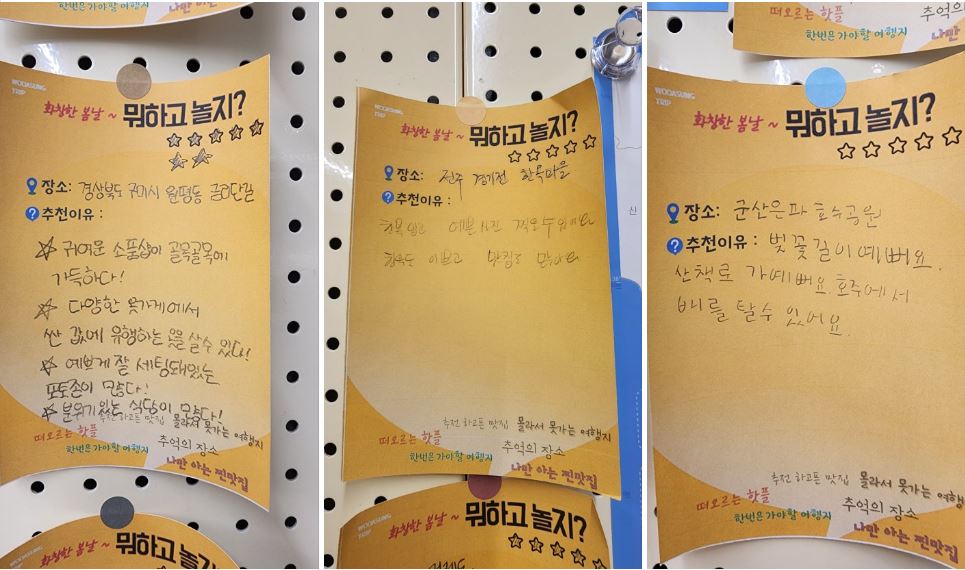 떠오르는 핫플
한번은가야할여행지
WOOASUNG
TRIP
화창한 봄날 ~ 뭐하고 놀지?
장소: 경상북도 구미시 원평동 금리단길
추천이유 :
귀여운 소품샵이 골목골목에
가득하다!
다양한 옷가게에서
싼 값에 유행하는 옷을 살수 있다!
예쁘게 잘 세팅돼있는
포토존이 많다!
분위기 있는 식당이 많다!
추천 하고픈 맛집 몰라서 못가는 여행지
떠오르는 핫플 추억의 장소
한번은가야할여행지 나만 아는 찐맛집
화창한 봄날 ~ 뭐하고 놀지?
WOOASUNG
TRIP
화창한 봄날 ~ 뭐하고 놀지?
장소: 전주 경기전 한옥마을
추천이유 :
한복입고 예쁜사진 찍을수있어요
한옥도 이쁘고 맛집도 많아요
추천 하고픈 맛집 몰라서 못가는 여행지
떠오르는 핫플 추억의 장소
한번은가야할여행지 나만 아는 찐맛집
WOOASUNG
TRIP
화창한 봄날 ~ 뭐하고 놀지?
신
떠오르는 핫플 추억의
한번은가야할여행지 나만
WOOASUNG
TRIP
화창한 봄날 ~ 뭐하고 놀지?
장소: 군산은파호수공원
추천이유 : 벚꽃길이예뻐요.
산책로가예뻐요. 호주에서
배를 탈수 있어요.
추천 하고픈 맛집 몰라서 못가는 여행
떠오르는 핫플 추억의 장소
한번은가야할여행지 나만 아는 찐맛집
화창한 봄날 ~ 뭐하고 놀지?